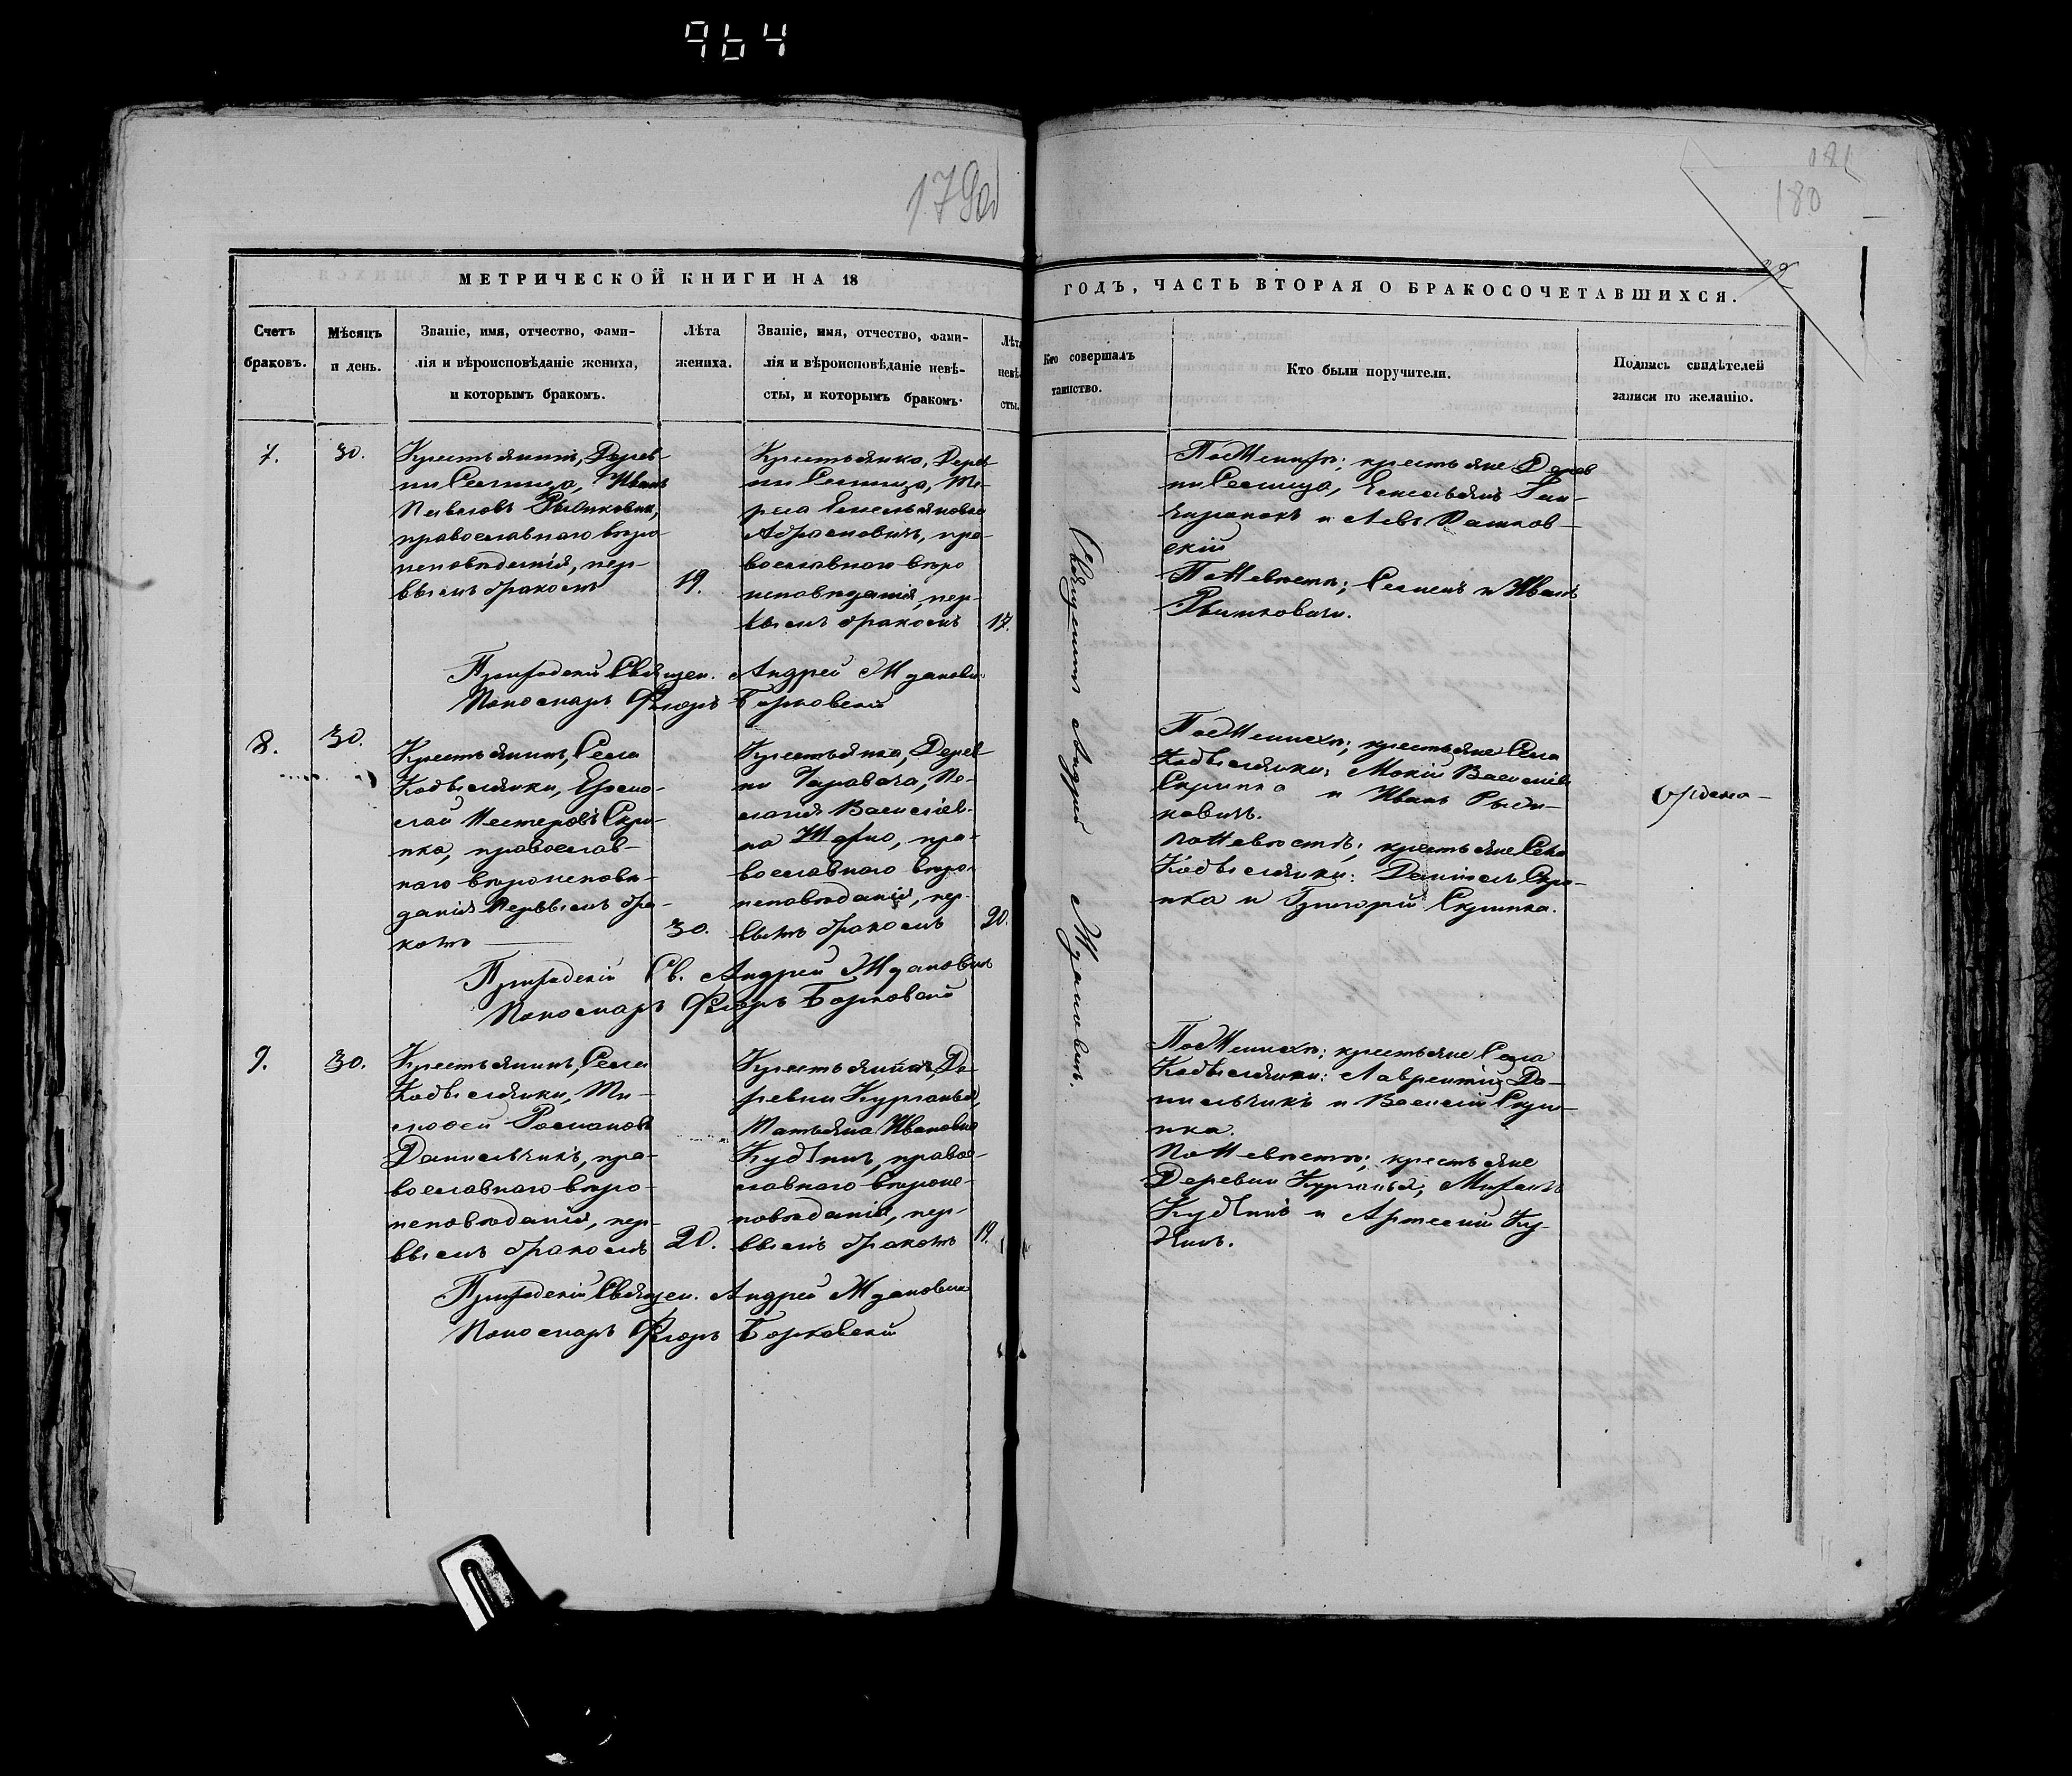 964
179об
180
МЕТРИЧЕСКОЙ КНИГИ НА 18
ГОДЪ, ЧАСТЬ ВТОРАЯ О БРАКОСОЧЕТАВШИХСЯ.
Счетъ
браковъ.
Мѣсяцъ
и день.
Званіе, имя, отчество, фами-
лія и вѣроисповѣданіе жениха,
и которымъ бракомъ.
Лѣта
жениха.
Званіе, имя, отчество, фами-
лія и вѣроисповѣданіе невѣ-
сты, и которымъ бракомъ.
Лѣта
невѣ-
сты.
Кто совершалъ
таинство.
Кто были поручители.
Подпись свидѣтелей
записи по желанію.
7.
30.
Крестьянинъ, Дерев-
ни Селища, Иванъ
Павловъ
православнаго вѣро-
исповѣданія, пер-
вымъ бракомъ
19.
Крестьянка, Дерев-
ни Селища,
Емельянова
Абрамовичъ, пра-
вославнаго вѣро
исповѣданія, пер-
вымъ бракомъ
17.
Священникъ Андрей Ждановичъ.
По Женихѣ; крестьяне Дерев
ни Селища, Емельянъ
и Левъ Дашков-
скій
По Невѣстѣ; Семенъ и Иванъ
Приходскій Священ. Андрей Ждановичъ
Пономарь Флоръ Борковскій
8.
30.
Крестьянинъ, Села
Кобыляки, Ермо-
лай Нестеровъ Скри-
пка, православ-
наго вѣроисповѣ-
данія Первымъ бра-
комъ
30.
Крестьянка, Дерев
ни
Васильев-
на пра-
вославнаго вѣро-
исповѣданія, пер-
вымъ бракомъ
20.
По Женихѣ; крестьяне Села
Кобыляки: Мокій Васильевъ
Скрипка и Иванъ
По Невѣстѣ; крестьяне Села
Кобыляки: Даніилъ Скри-
пка и Григорій Скрипка.
Приходскій Св. Андрей Ждановичъ
Пономарь Флоръ Борковскій
9.
30.
Крестьянинъ, Села
Кобыляки, Ти-
мофей Романовъ
Данильчикъ, пра-
вославнаго вѣро-
исповѣданія, пер-
вымъ бракомъ
20.
Де-
ревни Курганья,
Татьяна Иванова
православ-
наго вѣроис-
повѣданія, пер-
вымъ бракомъ
19.
По Женихѣ; крестьяне Села
Кобыляки: Лаврентій Да-
нильчикъ и Василій Скри-
пка.
По Невѣстѣ; крестьяне
Деревни Курганья;
и Артемій
Приходскій Священ. Андрей Ждановичъ
Пономарь Флоръ Борковскій